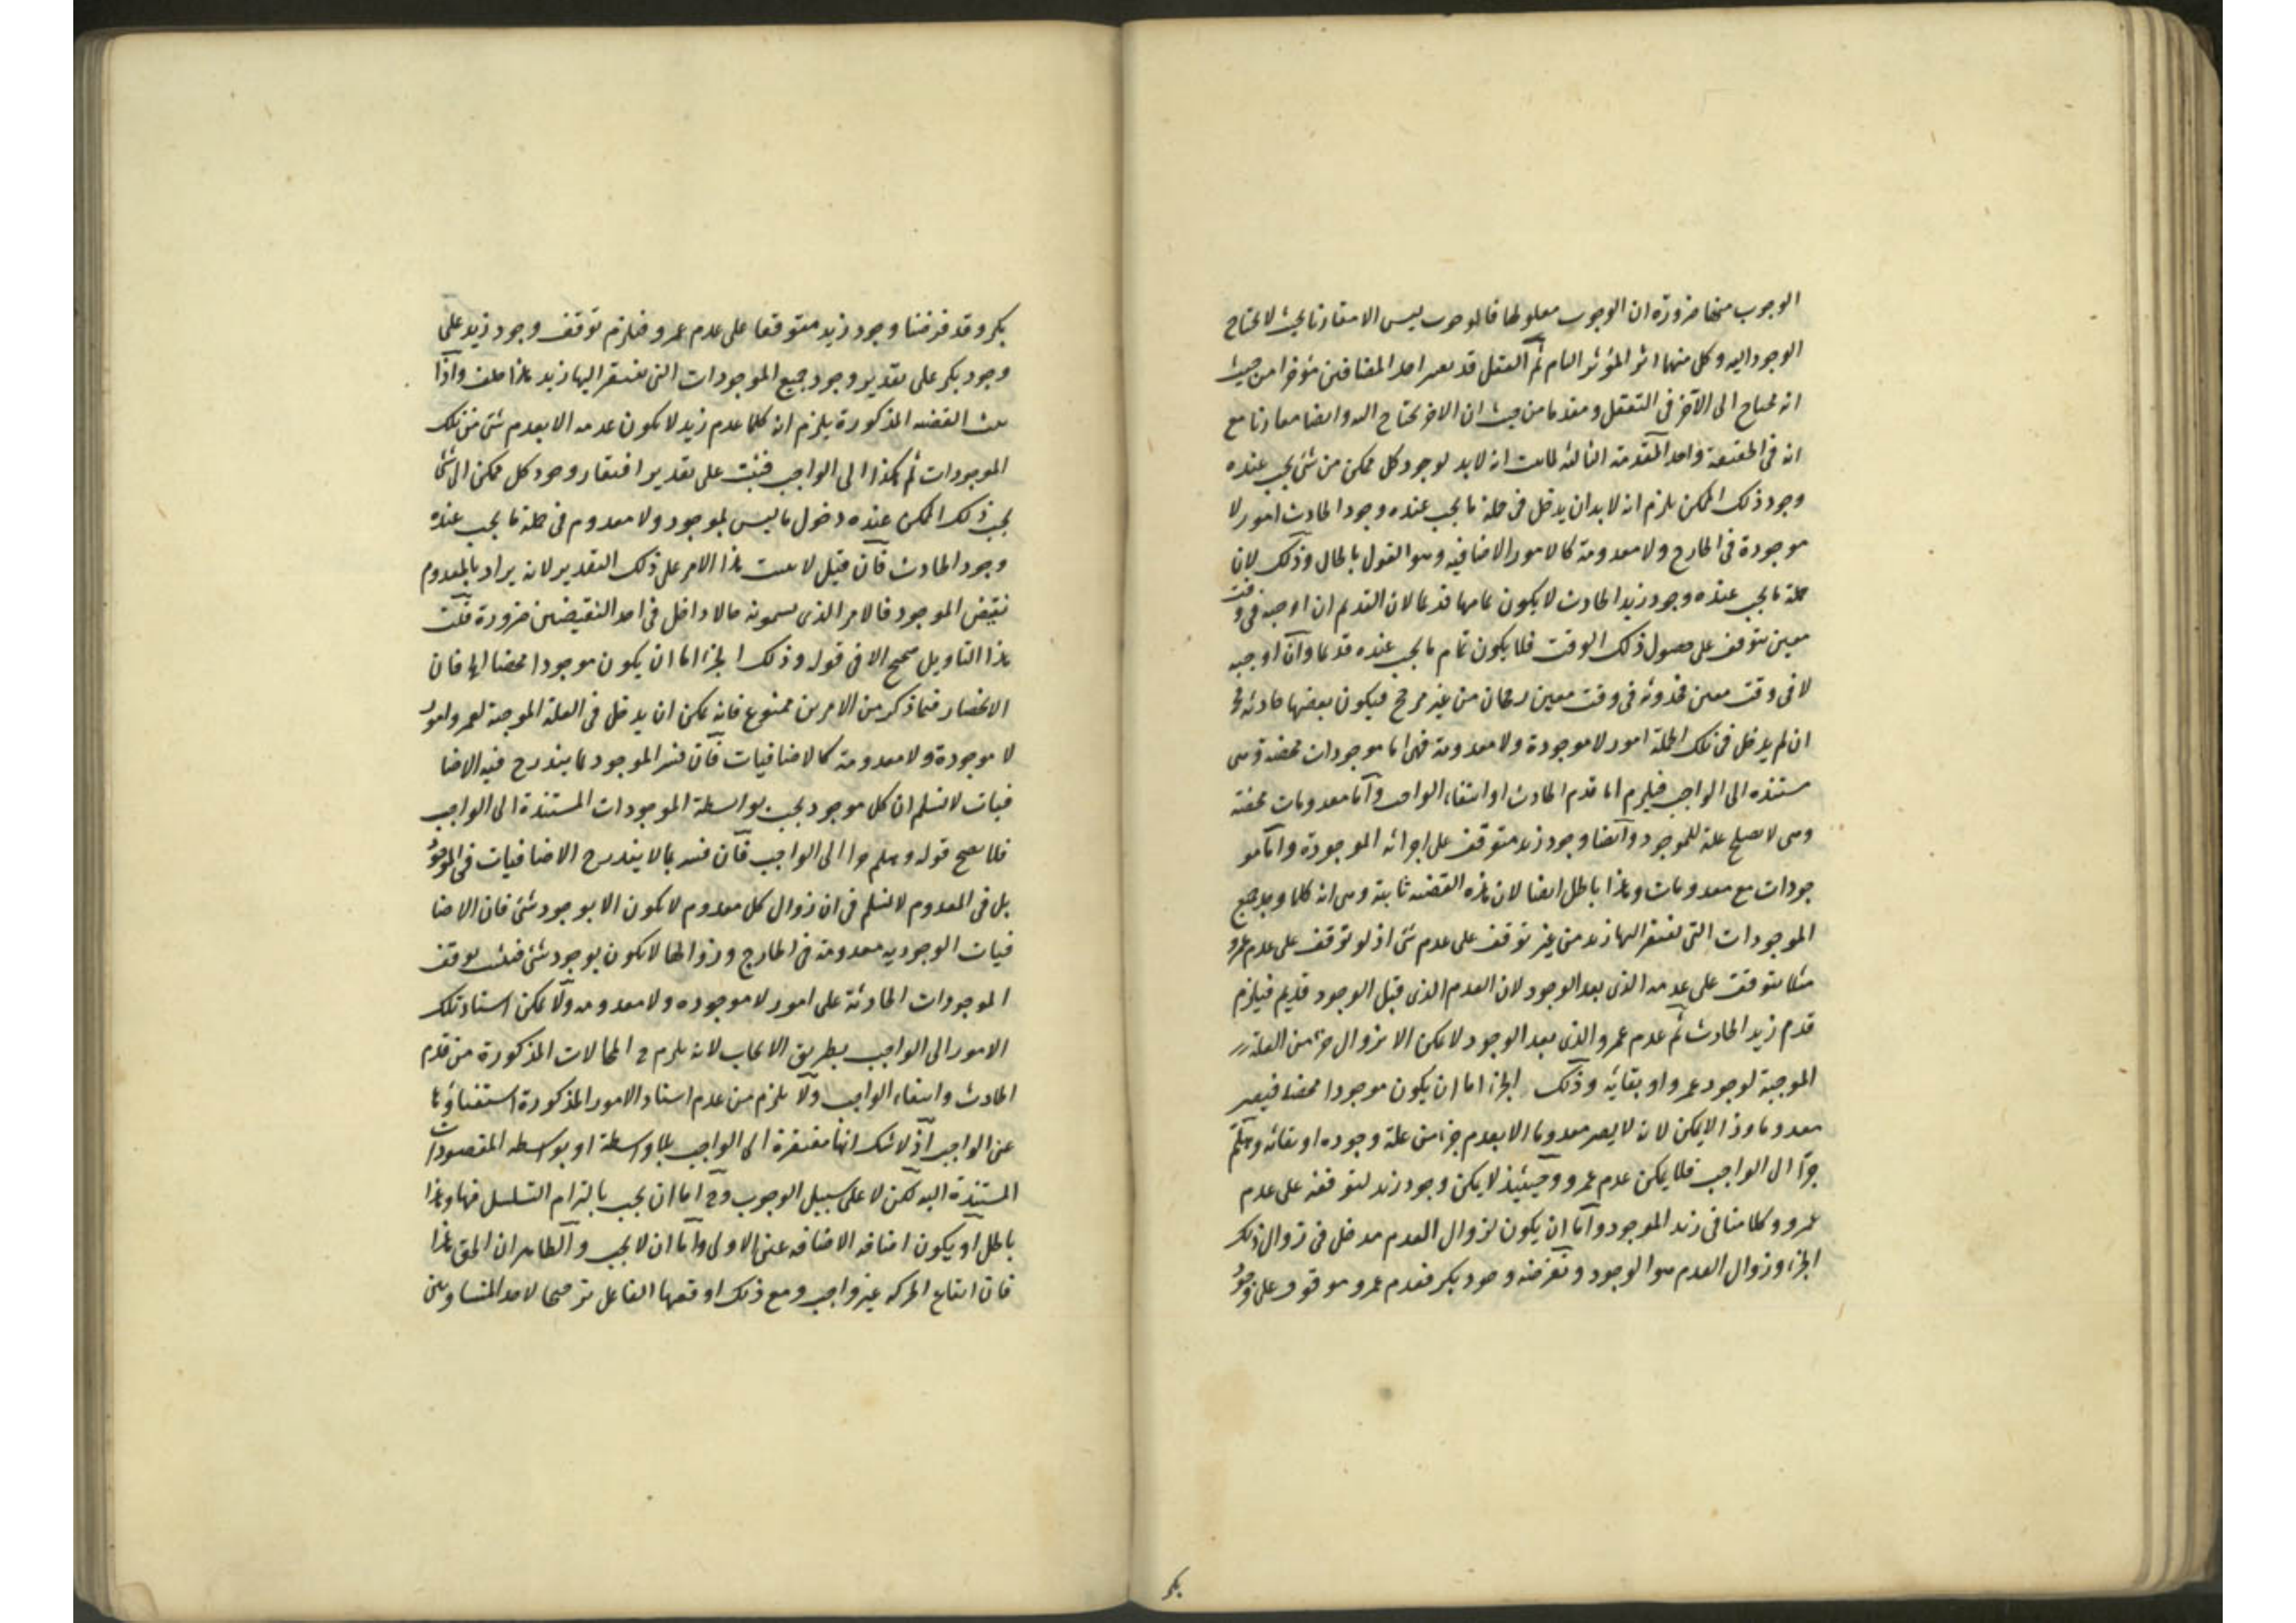 الوجوب منها ضرورة ان الوجوب معلولها فالوجوب ليس الا مقارنا بحيث لا يحتاج
الوجود اليه وكل منهما اثر المؤثر التام ثم العقل قد يعتبر احد المضافين مؤخرا من حيث
انه محتاج الى الآخر فى التعقل ومقدما من حيث ان الاخر يحتاج اليه وايضا مقارنا مع
انه فى الحقيقة واحد المقدمة الثالثة لما ثبت انه لا بد لوجود كل ممكن من شئ يجب عنده
وجود ذلك الممكن يلزم انه لا بد ان يدخل فى جملة ما يجب عنده وجود الحادث امور لا
موجودة فى الخارج ولا معدومة كالامور الاضافية وهو القول بالحال وذلك لان
جملة ما يجب عنده وجود زيد الحادث لا يكون تمامها قديما لان القديم ان اوجبه فى وقت
معين يتوقف على حصول ذلك الوقت فلا يكون تمام ما يجب عنده قديما وان اوجبه
لا فى وقت معين فحدوثه فى وقت معين رجحان من غير مرجح فيكون بعضها حادثا فح
ان لم يدخل فى تلك الجملة امور لا موجودة ولا معدومة فهى اما موجودات محضة وهى
مستندة الى الواجب فيلزم اما قدم الحادث او انتفاء الواجب واما معدومات محضة
وهى لا تصلح علة للموجود وايضا وجود زيد متوقف على اجزائه الموجودة واما مو
جودات مع معدومات وهذا باطل ايضا لان هذه القضية ثابتة وهى انه كلما وجد جميع
الموجودات التى يفتقر اليها زيد من غير توقف على عدم شئ اذ لو توقف على عدم عمرو
مثلا يتوقف على عدمه الذى بعد الوجود لان العدم الذى قبل الوجود قديم فيلزم
قدم زيد الحادث ثم عدم عمرو الذى بعد الوجود لا يمكن الا بزوال جزء من العلة
الموجبة لوجود عمرو او بقائه وذلك الجزء اما ان يكون موجودا محضا فيصير
معدوما وذا لا يمكن لانه لا يصير معدوما الا بعدم جزء من علة وجوده او بقائه وهلم
جرا الى الواجب فلا يمكن عدم عمرو وحينئذ لا يمكن وجود زيد لتوقفه على عدم
عمرو وكلامنا فى زيد الموجود واما ان يكون لزوال العدم مدخل فى زوال ذلك
الجزء وزوال العدم هو الوجود ونفرضه وجود بكر فعدم عمرو موقوف على وجود
بكر
بكر وقد فرضنا وجود زيد متوقفا على عدم عمرو فيلزم توقف وجود زيد على
وجود بكر على تقدير وجود جميع الموجودات التى يفتقر اليها زيد هذا خلف واذا
ثبت القضية المذكورة يلزم ان كلما عدم زيد لا يكون عدمه الا بعدم شئ من تلك
الموجودات ثم هكذا الى الواجب فثبت على تقدير افتقار وجود كل ممكن الى شئ
يجب ذلك الممكن عنده دخول ما ليس بموجود ولا معدوم فى جملة ما يجب عنده
وجود الحادث فان قيل لا يثبت هذا الامر على ذلك التقدير لانه يراد بالمعدوم
نقيض الموجود فالامر الذى يسمونه حالا داخل فى احد النقيضين ضرورة قلت
هذا التاويل صحيح الا فى قوله وذلك الجزء اما ان يكون موجودا محضا الخ فان
الانحصار فيما ذكر من الامرين ممنوع فانه يمكن ان يدخل فى العلة الموجبة لعمرو امور
لا موجودة ولا معدومة كالاضافيات فان فسر الموجود بما يندرج فيه الاضا
فيات لا نسلم ان كل موجود يجب بواسطة الموجودات المستندة الى الواجب
فلا يصح قوله وهلم جرا الى الواجب فان فسر بما لا يندرج الاضافيات فى الموجود
بل فى المعدوم لا نسلم فى ان زوال كل معدوم لا يكون الا بوجود شئ فان الاضا
فيات الوجودية معدومة فى الخارج وزوالها لا يكون بوجود شئ فثبت توقف
الموجودات الحادثة على امور لا موجودة ولا معدومة ولا يمكن استناد تلك
الامور الى الواجب بطريق الايجاب لانه يلزم ح المحالات المذكورة من قدم
الحادث وانتفاء الواجب ولا يلزم من عدم استناد الامور المذكورة استغناؤها
عن الواجب اذ لا شك انها مفتقرة الى الواجب بلا واسطة او بواسطة المقصودات
المستندة اليه لكن لا على سبيل الوجوب وح اما ان يجب بالتزام التسلسل فيها وهذا
باطل او يكون اضافة الاضافة عين الاولى واما ان لا يجب والظاهر ان الحق هذا
فان ايقاع الحركة غير واجب ومع ذلك اوقعها الفاعل ترجيحا لاحد المتساويين